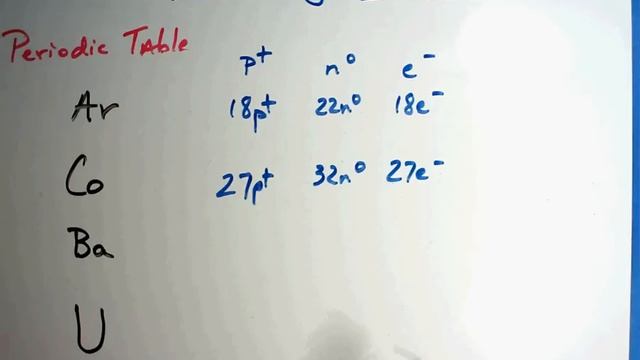 Periodic Table
p⁺ n⁰ e⁻
Ar 18p⁺ 22n⁰ 18e⁻
Co 27p⁺ 32n⁰ 27e⁻
Ba
U